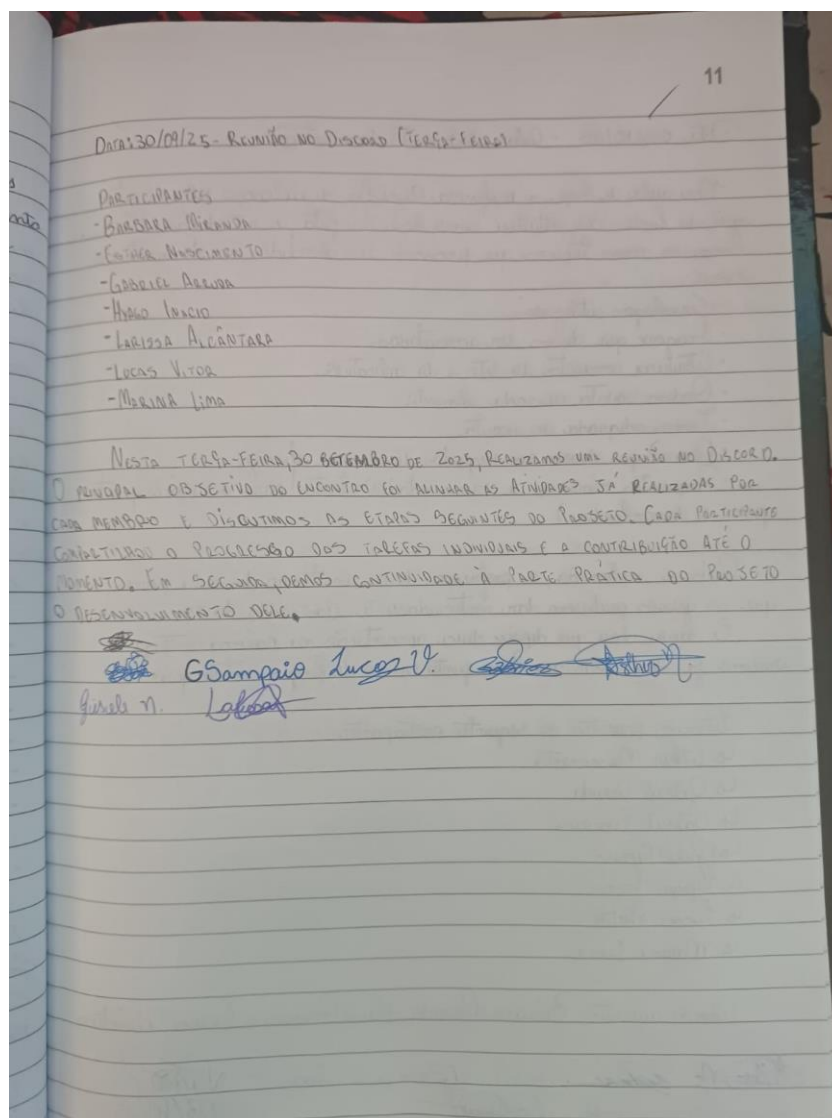 11
DATA: 30/09/25 - REUNIÃO NO DISCORD (TERÇA-FEIRA)
PARTICIPANTES
- BARBARA MIRANDA
- ESTHER NASCIMENTO
- GABRIEL ARRUDA
- HYAGO INACIO
- LARISSA ALCÂNTARA
- LUCAS VITOR
- MARINA LIMA
NESTA TERÇA-FEIRA, 30 SETEMBRO DE 2025, REALIZAMOS UMA REUNIÃO NO DISCORD.
O OBJETIVO DO ENCONTRO FOI ALINHAR AS ATIVIDADES JÁ REALIZADAS POR
CADA MEMBRO E DISCUTIMOS AS ETAPAS SEGUINTES DO PROJETO. CADA PARTICIPANTE
O PROGRESSO DAS TAREFAS INDIVIDUAIS E A CONTRIBUIÇÃO ATÉ O
MOMENTO. EM SEGUIDA, DEMOS CONTINUIDADE À PARTE PRÁTICA DO PROJETO
O DESENVOLVIMENTO DELE.
GSampaio Lucas V.
Gisele n.